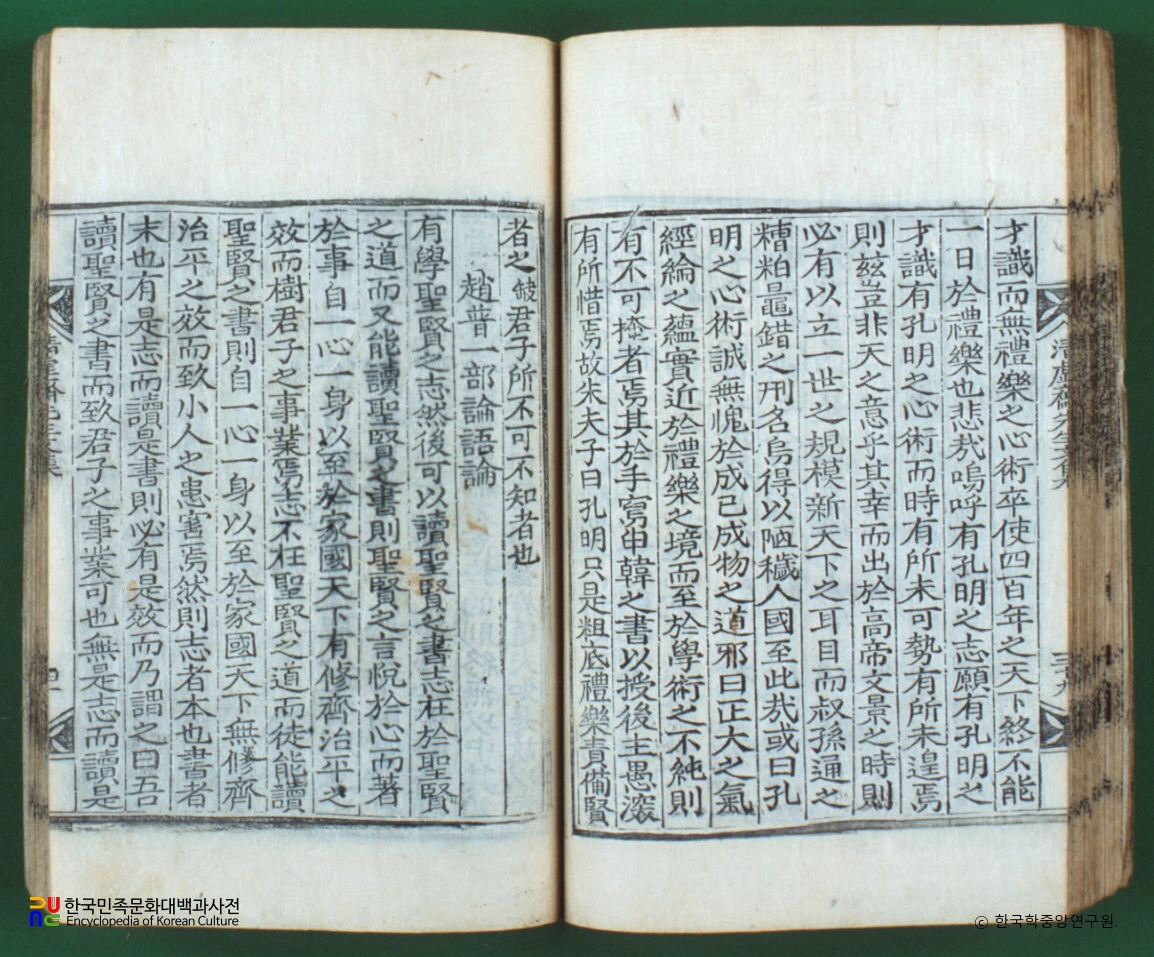 才識而無禮樂之心術卒使四百年之天下終不能
一日於禮樂也悲哉嗚呼有孔明之志願有孔明之
才識有孔明之心術而時有所未可勢有所未遑焉
則玆豈非天之意乎其幸而出於高帝文景之時則
必有以立一世之規模新天下之耳目而叔孫通之
糟粕鼂錯之刑名烏得以陋穢人國至此哉或曰孔
明之心術誠無愧於成己成物之道邪曰正大之氣
經綸之蘊實近於禮樂之境而至於學術之不純則
有不可掩者焉其於手寫申韓之書以授後主愚深
有所惜焉故朱夫子曰孔明只是粗底禮樂責備賢
者之 君子所不可不知者也
趙普一部論語論
有學聖賢之志然後可以讀聖賢之書志在於聖賢
之道而又能讀聖賢之書則聖賢之言悅於心而著
於事自一心一身以至於家國天下有修齊治平之
效而樹君子之事業焉志不在聖賢之道而徒能讀
聖賢之書則自一心一身以至於家國天下無修齊
治平之效而致小人之患害焉然則志者本也書者
末也有是志而讀是書則必有是效而乃謂之曰吾
讀聖賢之書而致君子之事業可也無是志而讀是
한국민족문화대백과사전
Encyclopedia of Korean Culture
© 한국학중앙연구원.